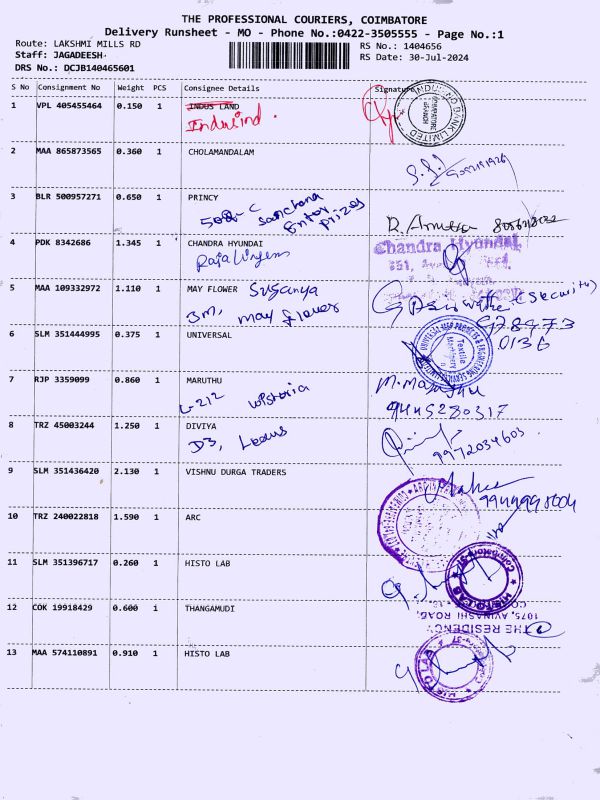 THE PROFESSIONAL COURIERS, COIMBATORE
Delivery Runsheet - MO - Phone No.:0422-3505555 - Page No.:1
Route: LAKSHMI MILLS RD
RS No.: 1404656
Staff: JAGADEESH
RS Date: 30-Jul-2024
DRS No.: DCJB140465601
S No Consignment No Weight PCS Consignee Details Signature
1 VPL 405455464 0.150 1 INDUS LAND
Indusind.
INDUSIND BANK LIMITED
COIMBATORE BRANCH
2 MAA 865873565 0.360 1 CHOLAMANDALAM
3 BLR 500957271 0.650 1 PRINCY
508-C Sanchana
Enter
prizes
4 PDK 8342686 1.345 1 CHANDRA HYUNDAI
Chandra Hyundai,
5 MAA 109332972 1.110 1 MAY FLOWER Suganya
3M, May flower
(Security)
978973
0136
6 SLM 351444995 0.375 1 UNIVERSAL
Textile
Machinery
7 RJP 3359099 0.860 1 MARUTHU
L-212 wistoria
9445280317
8 TRZ 45003244 1.250 1 DIVIYA
D3, Lotus
9972034603
9 SLM 351436420 2.130 1 VISHNU DURGA TRADERS
9944998004
10 TRZ 240022818 1.590 1 ARC
11 SLM 351396717 0.260 1 HISTO LAB
HISTO LAB
Coimbatore
12 COK 19918429 0.600 1 THANGAMUDI
THE RESIDENCY
1075, AVINASHI ROAD,
13 MAA 574110891 0.910 1 HISTO LAB
HISTO LAB